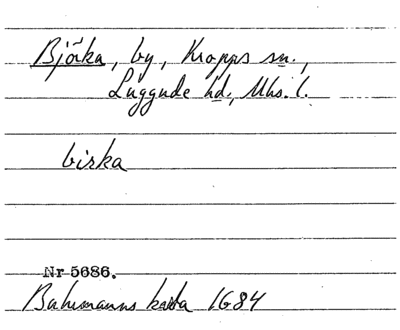 Björka, by, Kropps sn.,
Luggude hd., Mhs. l.
birka
Nr 5686.
Buhrmanns karta 1684